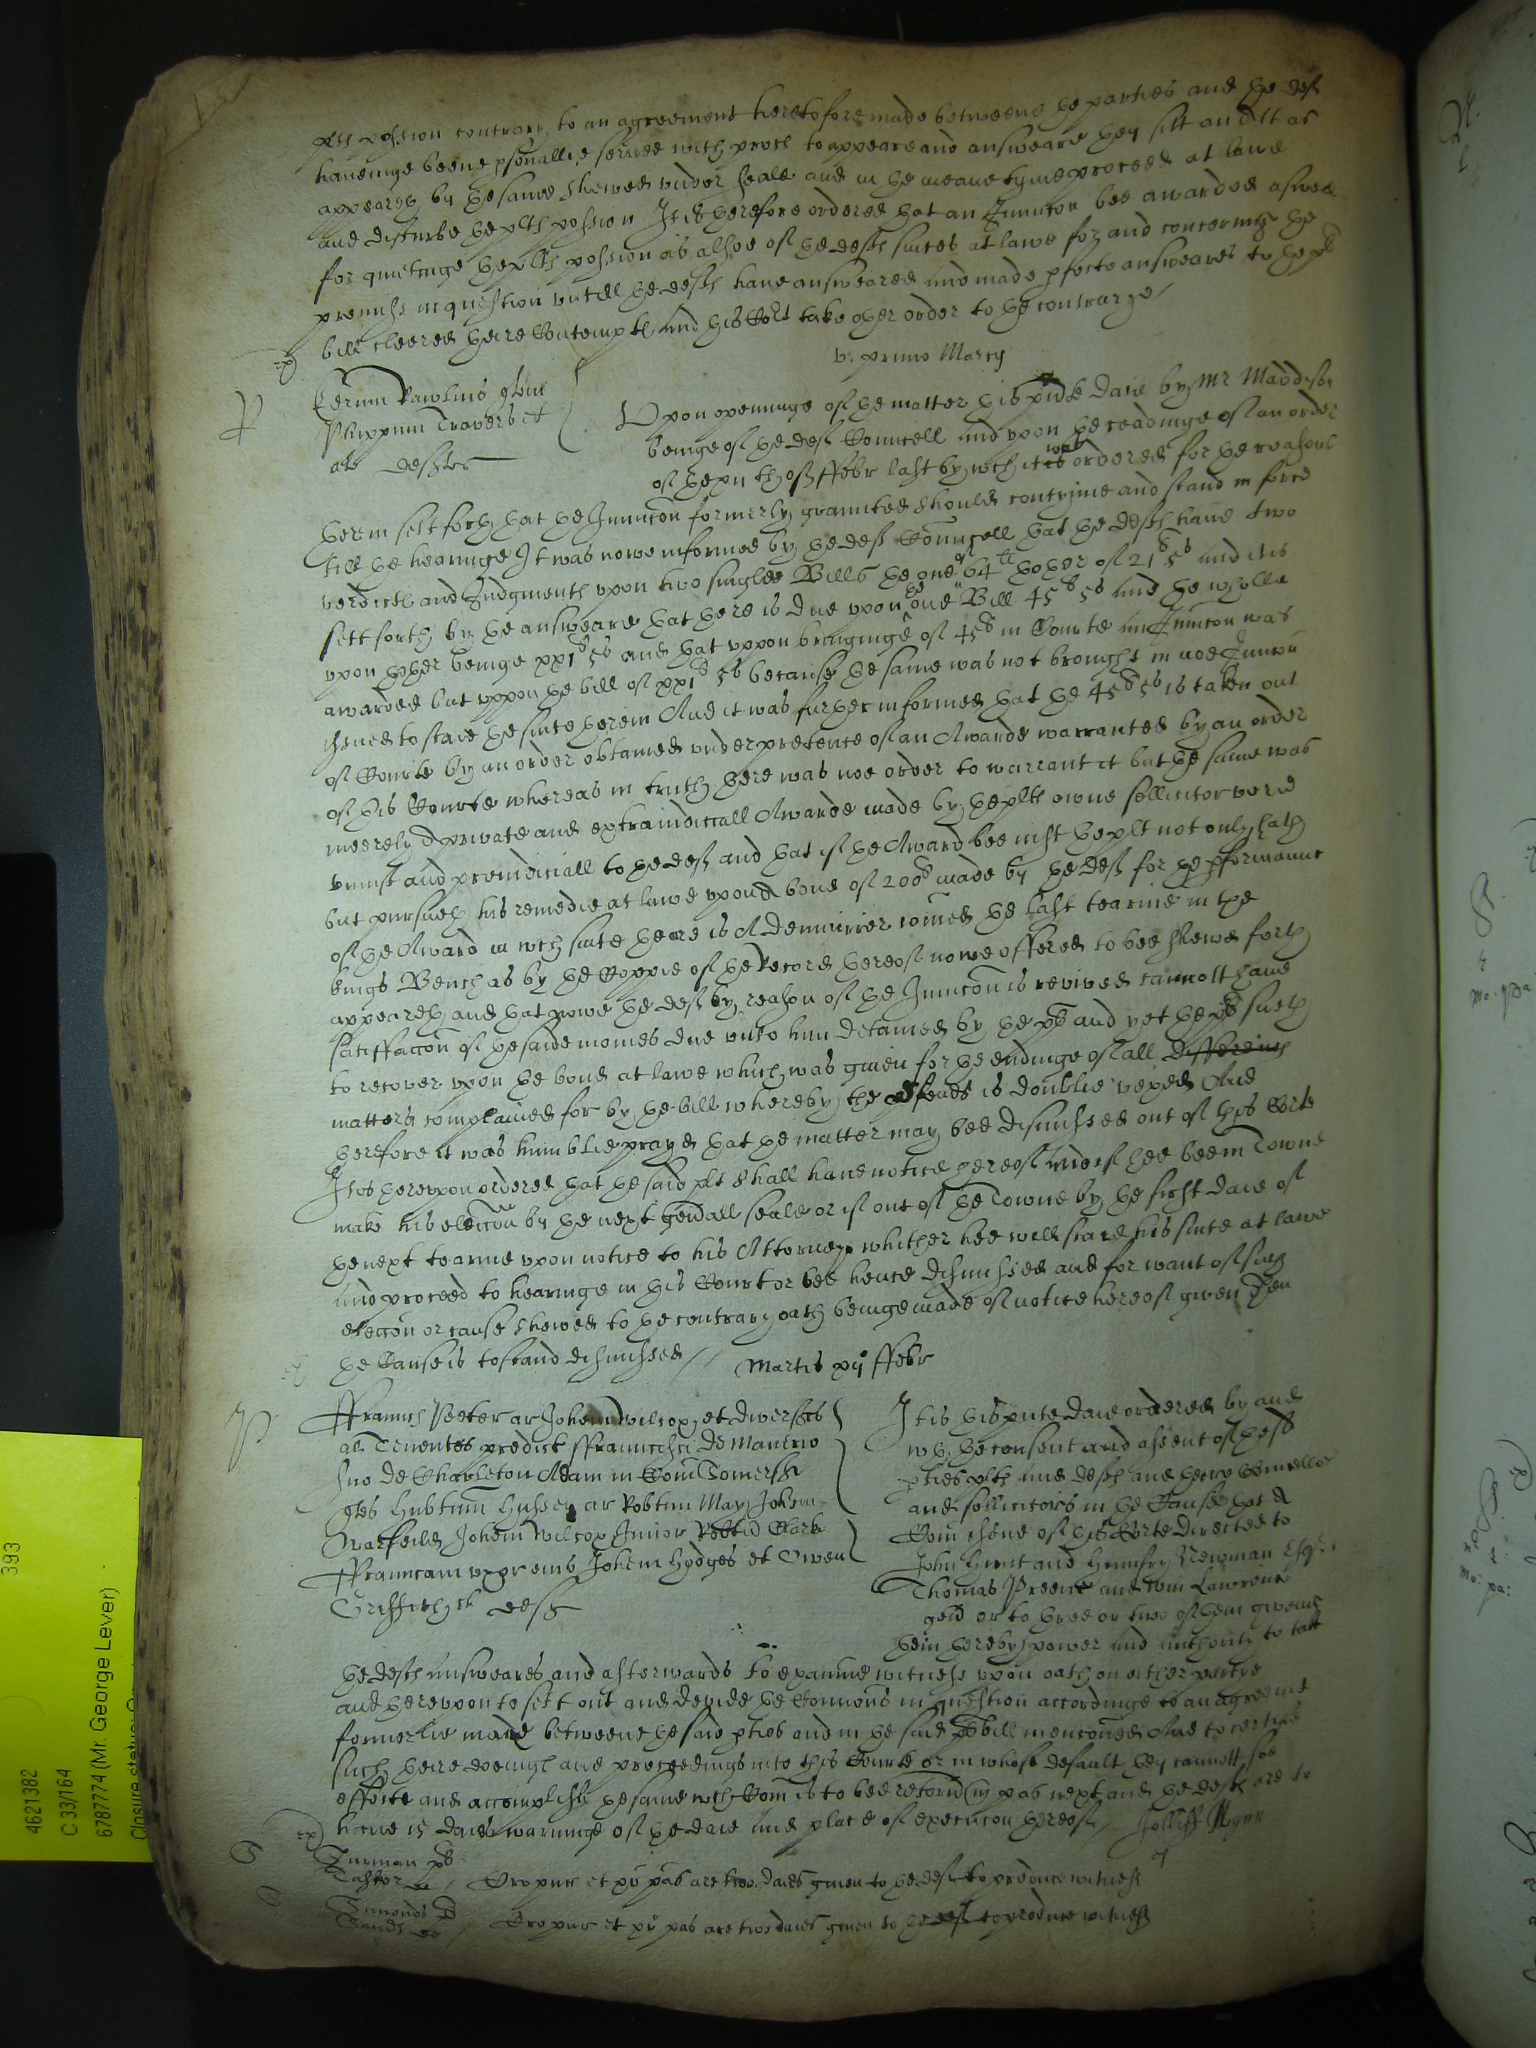 plts possion contrary to an agreement heretofore made betweene the parties and the deft
haueinge beene psonallie served with proces to appeare and answeare they sitt an att as
appeareth by the same shewed vnder seale and in the meane tyme proceed at lawe
and disturbe the plts possion It is therefore ordered that an Iniuncon bee awarded aswell
for quietinge the plts possion as alsoe of the defts suites at lawe for and concerninge the
premiss in question vntill the defts haue answeared and made pfecte answeares to the plts
bill cleered theire Contempts and this Cort take other order to the contrarye /
v: primo Marcy
Rawlins quer
Phippum Travers et
al defts
Vpon openinge of the matter this pnte daie by Mr Maddest
beinge of the deft Councell and vpon the readinge of an order
of the xii th of Febr last by wch it is was ordered for the reasons
therein sett forth that the Iniuncon formerly graunted should contynue and stand in force
till the hearinge It was nowe informed by the defts Councell that the defts haue two
verdicts and Iudgments vpon two single Bills the one of 64 li thother of 21 li 5s and it is
sett forth by the answeare that there is due vpon the one Bill 45 li 5s and the wholle
vpon thother beinge xxi li 5s and that vppon bringinge of 45 li in Courte an Iniuncon was
awarded but vppon the bill of xxi li 5s because the same was not brought in noe Iniuncon
issued to staie the suite therein And it was further informed that the 45 li 5s is taken out
of Courte by an order obtained vnder pretence of an Awarde warranted by an order
of this Courte whereas in truth there was noe order to warrant it but the same was
meerely A private and extraiudiciall Awarde made by the plts owne sollicitor verie
vniust and preiudiciall to the deft and that if the Award bee iust the plt not only hath
but pursueth his remedie at lawe vpon A bond of 200 li made by the deft for the pformance
of the Award in wch suite there is A demurrer ioined the last tearme in the
kings Bench as by the Coppie of the Record thereof nowe offered to bee shewed forth
appeareth and that nowe the deft by reason of the Iniuncon is revived cannott haue
satisffaccon of the saide monies due vnto him detained by the plt and yet the plt sueth
to recover vpon the bond at lawe which was given for the endinge of all differences
matters complained for by the bill whereby the defend is doublie vexed And
therefore it was humblie prayed that the matter may bee dismissed out of this Corte
It is therevpon ordered that the said plt shall haue notice thereof and if hee bee in Towne
make his eleccon by the next genall seale or if out of the Towne by the first daie of
the next tearme vpon notice to his Attorney whither hee will staie his suite at lawe
and proceed to hearinge in this Court or bee hence dismissed and for want of such
eleccon or cause shewed to the contrary oath beinge made of notice hereof given then
the Cause is to stand dismissed //
Martis xii Febr
Frauncis Veeker ar Iohem Wilcox et diversos
al Tenentes predict Francisci de Manerio
suo de Charleton Adam in Com Somerset
qtes Hubtum Hussey ar Robtum May Iohem
Warfeild Iohem Wilcox Iunior Clark
Franncam vxor eius Iohem Hodges et Owen
Griffith defts
It is this pnte daie ordered by and
wth the consent and assent of the sd
pties plts and defts and theire Councelles
and sollicitors in the Cause that A
Com issue of this Corte directed to
Iohn Hunt and Humfry Newman Esqs
Thomas Preene and Wm Lawrence
gen or to three or two of them giveinge
them thereby power and authority to take
the defts answeares and afterwards to examine witnesss vpon oath on either partye
and therevpon to sett out and devide the Comons in question accordinge to an agreemt
formerlie made betweene the said pties and in the said plts bill mentioned And to certifie
such theire doeings and proceedings into this Courte or in whose default they cannott soe
effecte and accomplishe the same wch Com is to bee retorn in pas next and the defts are to
haue 15 daies warninge of the daie and place of execucon thereof / Iolliffe Wynn
Inrman plt
def / Cro pur et xv pas are two daies given to the deft to produce witness
Simonds plt
Sands def / Cro pur et xv pas are two daies given to the deft to produce witness
393
4621382
C 33/164
6787774 (Mr. George Lever)